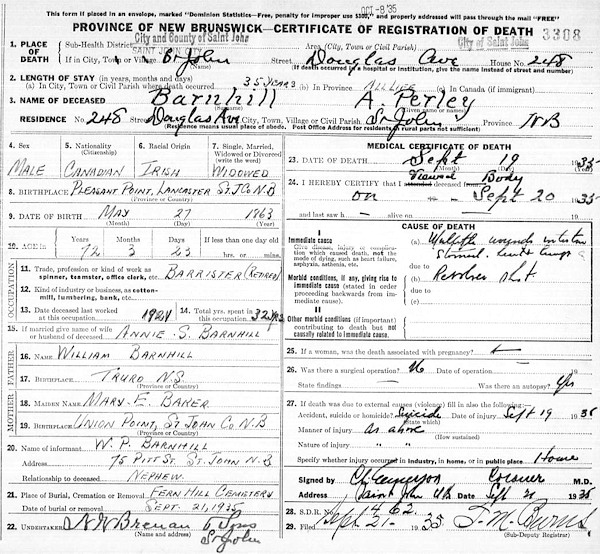 This form if placed in an envelope, marked "Dominion Statistics—Free, penalty for improper use $300," and properly addressed will pass through the mail "FREE"
OCT -8 '35
PROVINCE OF NEW BRUNSWICK—CERTIFICATE OF REGISTRATION OF DEATH 3308
1. PLACE OF DEATH
Sub-Health District City and County of Saint John Area (City, Town or Civil Parish) City of Saint John
SAINT JOHN CITY
If in City, Town or Village St John Street Douglas Ave House No. 248
(If death occurred in a hospital or institution, give the name instead of street and number)
2. LENGTH OF STAY (in years, months and days)
(a) In City, Town or Civil Parish where death occurred 35 YEARS (b) In Province ALL LIFE (c) In Canada (if immigrant)
3. NAME OF DECEASED Barnhill A. Perley
(Surname) (Given name or names)
RESIDENCE No. 248 Douglas Ave City, Town, Village or Civil Parish St John Province NB
(Residence means usual place of abode. Post Office Address for residents in rural parts not sufficient)
4. Sex 5. Nationality (Citizenship) 6. Racial Origin 7. Single, Married, Widowed or Divorced (write the word)
MALE CANADIAN IRISH WIDOWED
8. BIRTHPLACE PLEASANT POINT, LANCASTER ST. J CO N.B
(Province or Country)
9. DATE OF BIRTH MAY 27 1863
(Month) (Day) (Year)
10. AGE in Years Months Days If less than one day old
72 3 23 hrs. or mins.
OCCUPATION
11. Trade, profession or kind of work as spinner, teamster, office clerk, etc. BARRISTER (RETIRED)
12. Kind of industry or business, as cotton-mill, lumbering, bank, etc.
13. Date deceased last worked at this occupation 1924 14. Total yrs. spent in this occupation 32 yrs
15. If married give name of wife or husband of deceased ANNIE S. BARNHILL
FATHER
16. NAME WILLIAM BARNHILL
17. BIRTHPLACE TRURO N.S.
(Province or Country)
MOTHER
18. MAIDEN NAME MARY E. BAKER
19. BIRTHPLACE UNION POINT, ST JOHN CO N.B
(Province or Country)
20. Name of informant W. P. BARNHILL
Address 75 PITT ST. ST. JOHN N.B
Relationship to deceased NEPHEW
21. Place of Burial, Cremation or Removal FERN HILL CEMETERY
Date of burial or removal SEPT. 21, 1935
22. UNDERTAKER N W Brenan & Sons
(Name and address) St John
MEDICAL CERTIFICATE OF DEATH
23. DATE OF DEATH Sept 19 1935
(Month) (Day) (Year)
24. I HEREBY CERTIFY that I attended deceased Viewed Body
on Sept 20 1935
and last saw h alive on
CAUSE OF DEATH
I
Immediate cause
Give disease, injury or complication which caused death, not the mode of dying, such as heart failure, asphyxia, asthenia, etc.
(a) Multiple wounds
due to
Morbid conditions, if any, giving rise to immediate cause (stated in order proceeding backwards from immediate cause).
(b) Revolver shot
due to
(c)
II
Other morbid conditions (if important) contributing to death but not causally related to immediate cause.
25. If a woman, was the death associated with pregnancy?
26. Was there a surgical operation? No Date of operation
State findings Was there an autopsy? Yes
27. If death was due to external causes (violence) fill in also the following:
Accident, suicide or homicide? Suicide Date of injury Sept 19 1935
Manner of injury as above
(How sustained)
Nature of injury " "
Specify whether injury occurred in industry, in home, or in public place Home
Signed by Coroner M.D.
Address Saint John NB Date Sept 20 1935
28. S.D.R. No. 1462
29. Filed Sept 21- 1935 F. M. Burns
(Sub-Deputy Registrar)